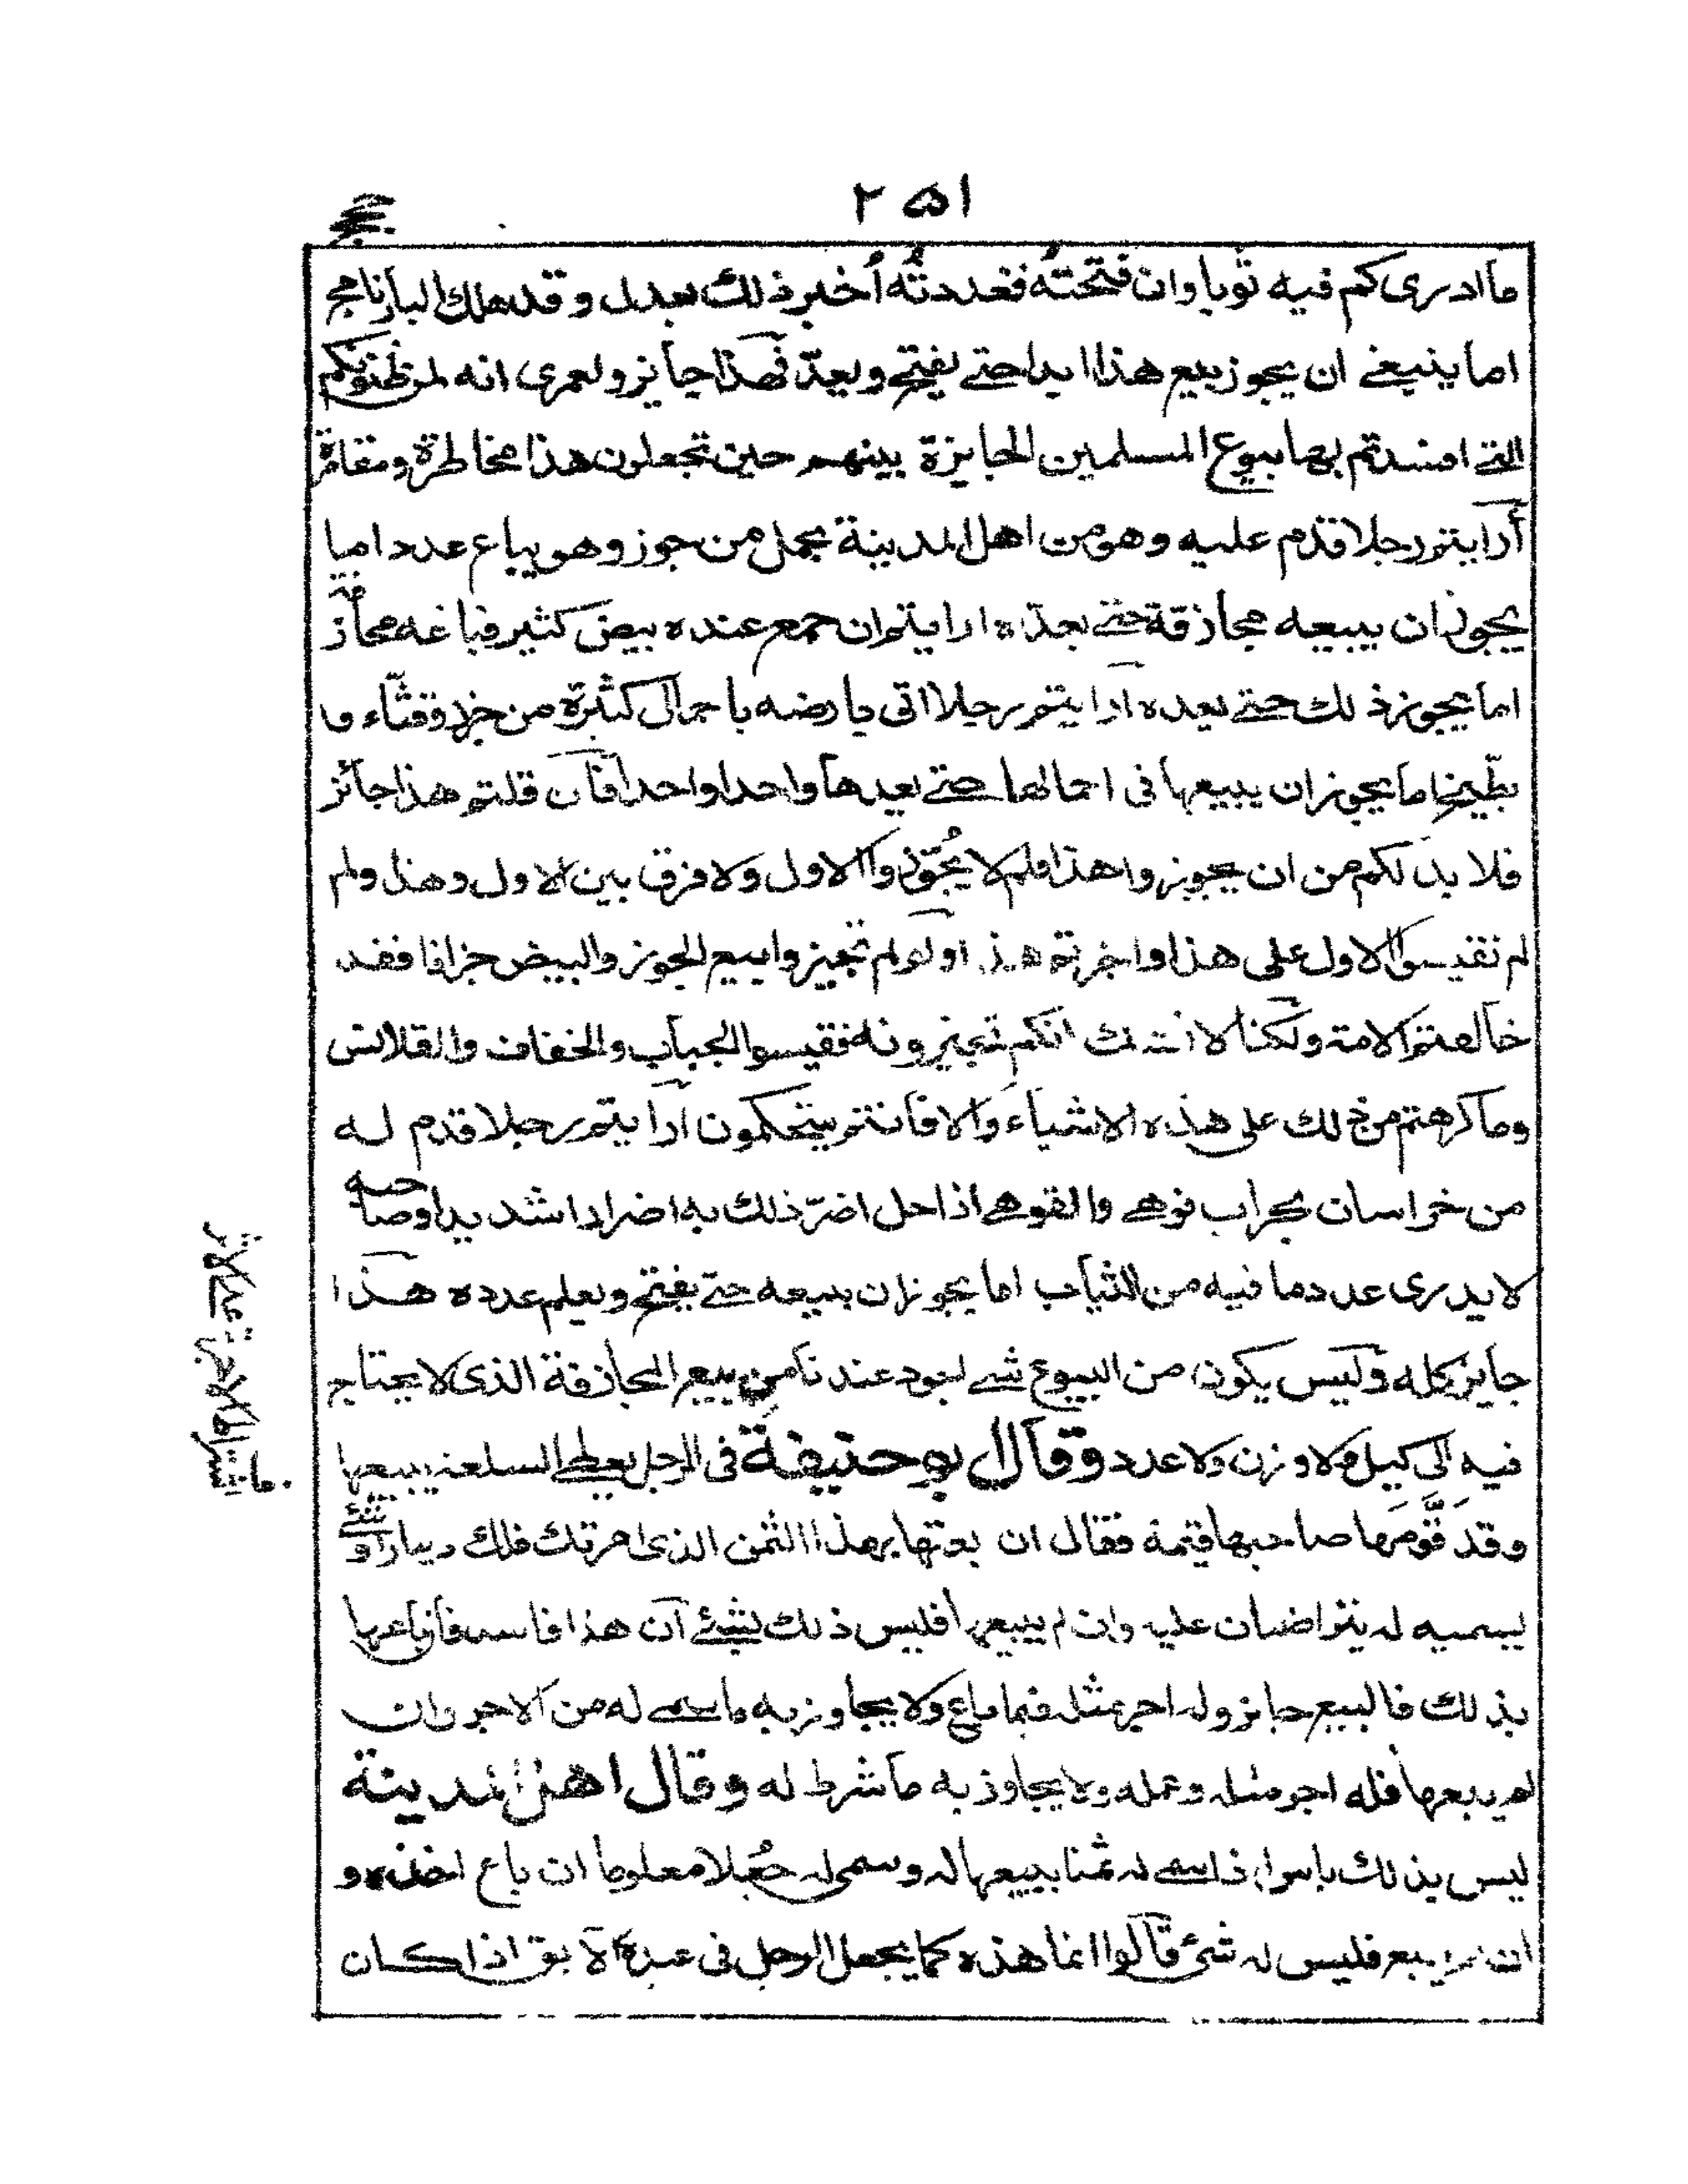 ٢٥١
ما ادري كم فيه ثوبا وان فتحته فعددته أُخبر ذلك بعدل وقد هلك البارنامج
اما ينبغي ان يجوز بيع هذا ابدا حتى يفتح ويعدّ فهذا جايز ولعمري انه لمن ظنونكم
التي افسدتم بها بيوع المسلمين الجايزة بينهم حين تجعلون هذا مخاطرة ومقامرة
أرايتم رجلا قدم عليه وهو من اهل المدينة بحمل من جوز وهو يباع عددا اما
يجوز ان يبيعه مجازفة حتى يعده ارايتم ان جمع عنده بيض كثير فباعه مجازفة
اما يجوز ذلك حتى يعده ارايتم رجلا اتى بارضه باحمال كثيرة من وقثّاء و
بطّيخ اما يجوز ان يبيعها في احمالها حتى يعدها واحدا واحدا فان قلتم هذا جائز
فلا بد لكم من ان يجوزوا هذا فلم لا يُجوّزوا الاول ولا فرق بين الاول وهذا ولم
لم تقيسوا الاول على هذا واجزتم هذا ولو لم تجيزوا بيع الجوز والبيض جزافا فقد
خالفتم الامة ولكنا لا نشك انكم تجيزونه فقيسوا الجباب والخفاف والقلانس
وما كرهتم من ذلك على هذه الاشياء والا فانتم تتحكمون ارايتم رجلا قدم له
من خراسان بجراب قوهي والقوهي اذا حل اضرّ ذلك به اضرارا شديدا وصاحبه
لا يدري عدد ما فيه من الثياب اما يجوز ان يبيعه حتى يفتح ويعلم عدده هذا
جايز كله وليس يكون من البيوع شي اجود عندنا من بيع المجازفة الذي لا يحتاج
فيه الى كيل ولا وزن ولا عدد وقال ابو حنيفة في الرجل يعطي السلعة يبيعها
وقد قوّمها صاحبها قيمة فقال ان بعتها بهذا الثمن الذي امرتك فلك دينار او شئ
يسميه له يتراضيان عليه وان لم يبيعها فليس ذلك بشئ ان هذا فاسد فان باعها
بذلك فالبيع جايز وله اجر مثله فيما باع ولا يجاوز به ما سمى له من الاجر وان
لم يبعها فله اجر مثله وعمله ولا يجاوز به ما شرط له وقال اهل المدينة
ليس بذلك باس اذا سمى له ثمنا يبيعها له وسمى له جُعلا معلوما ان باع اخذه و
ان لم يبع فليس له شئ قالوا انما هذه كما يجعل الرجل في عبده الآبق اذا كان